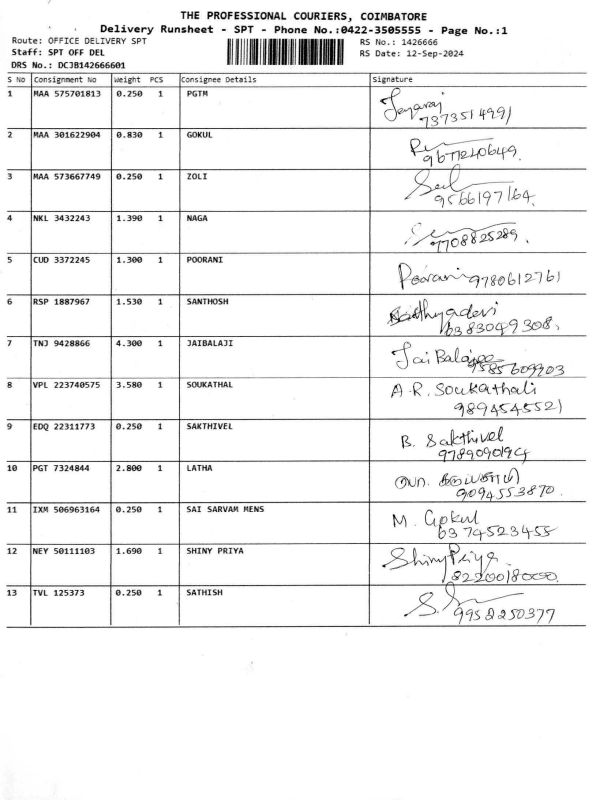 THE PROFESSIONAL COURIERS, COIMBATORE
Delivery Runsheet - SPT - Phone No.:0422-3505555 - Page No.:1
Route: OFFICE DELIVERY SPT RS No.: 1426666
Staff: SPT OFF DEL RS Date: 12-Sep-2024
DRS No.: DCJB142666601
S No Consignment No Weight PCS Consignee Details Signature
1 MAA 575701813 0.250 1 PGTM Jayaraj
7373514991
2 MAA 301622904 0.830 1 GOKUL
9677240649.
3 MAA 573667749 0.250 1 ZOLI
9566197164.
4 NKL 3432243 1.390 1 NAGA
7708825289.
5 CUD 3372245 1.300 1 POORANI Poorani 9780612761
6 RSP 1887967 1.530 1 SANTHOSH
6383049308.
7 TNJ 9428866 4.300 1 JAIBALAJI Jai Balajee
9585609903
8 VPL 223740575 3.580 1 SOUKATHAL A.R. Soukathali
9894545521
9 EDQ 22311773 0.250 1 SAKTHIVEL B. Sakthivel
10 PGT 7324844 2.800 1 LATHA
9094553870.
11 IXM 506963164 0.250 1 SAI SARVAM MENS M. Gokul
6374523455
12 NEY 50111103 1.690 1 SHINY PRIYA Shiny Priya.
8220018000.
13 TVL 125373 0.250 1 SATHISH
9952250377